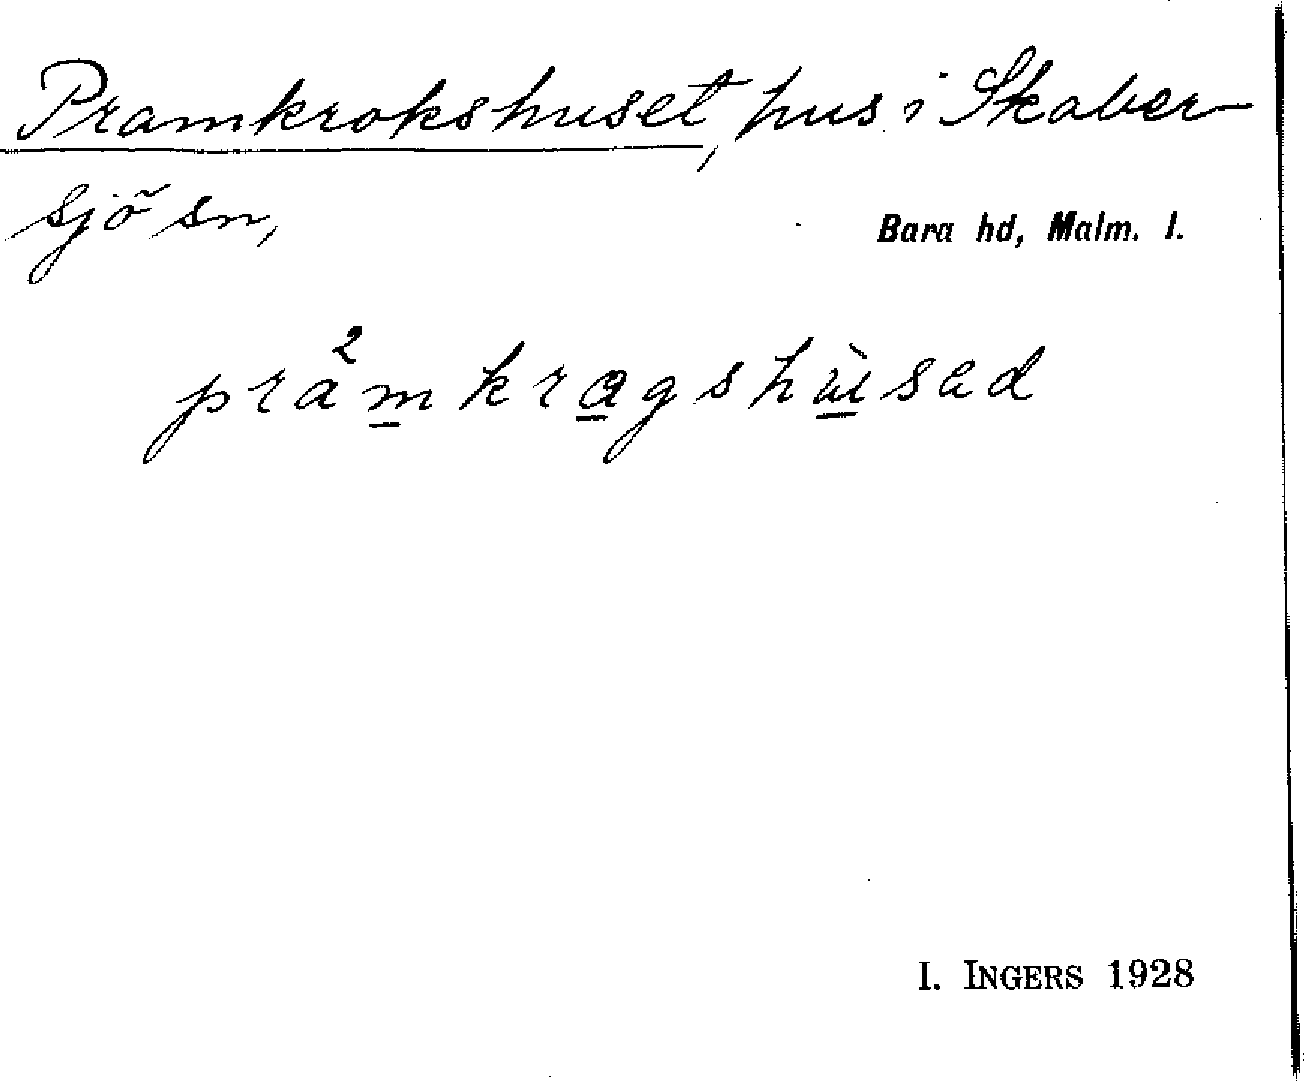 Pramkrokshuset, hus i Skaber-
sjö sn,
Bara hd, Malm. l.
prámkragshùsad
I. INGERS 1928